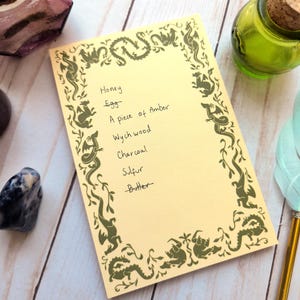 Honey
Egg
A piece of Amber
Wychwood
Charcoal
Sulfur
Butter